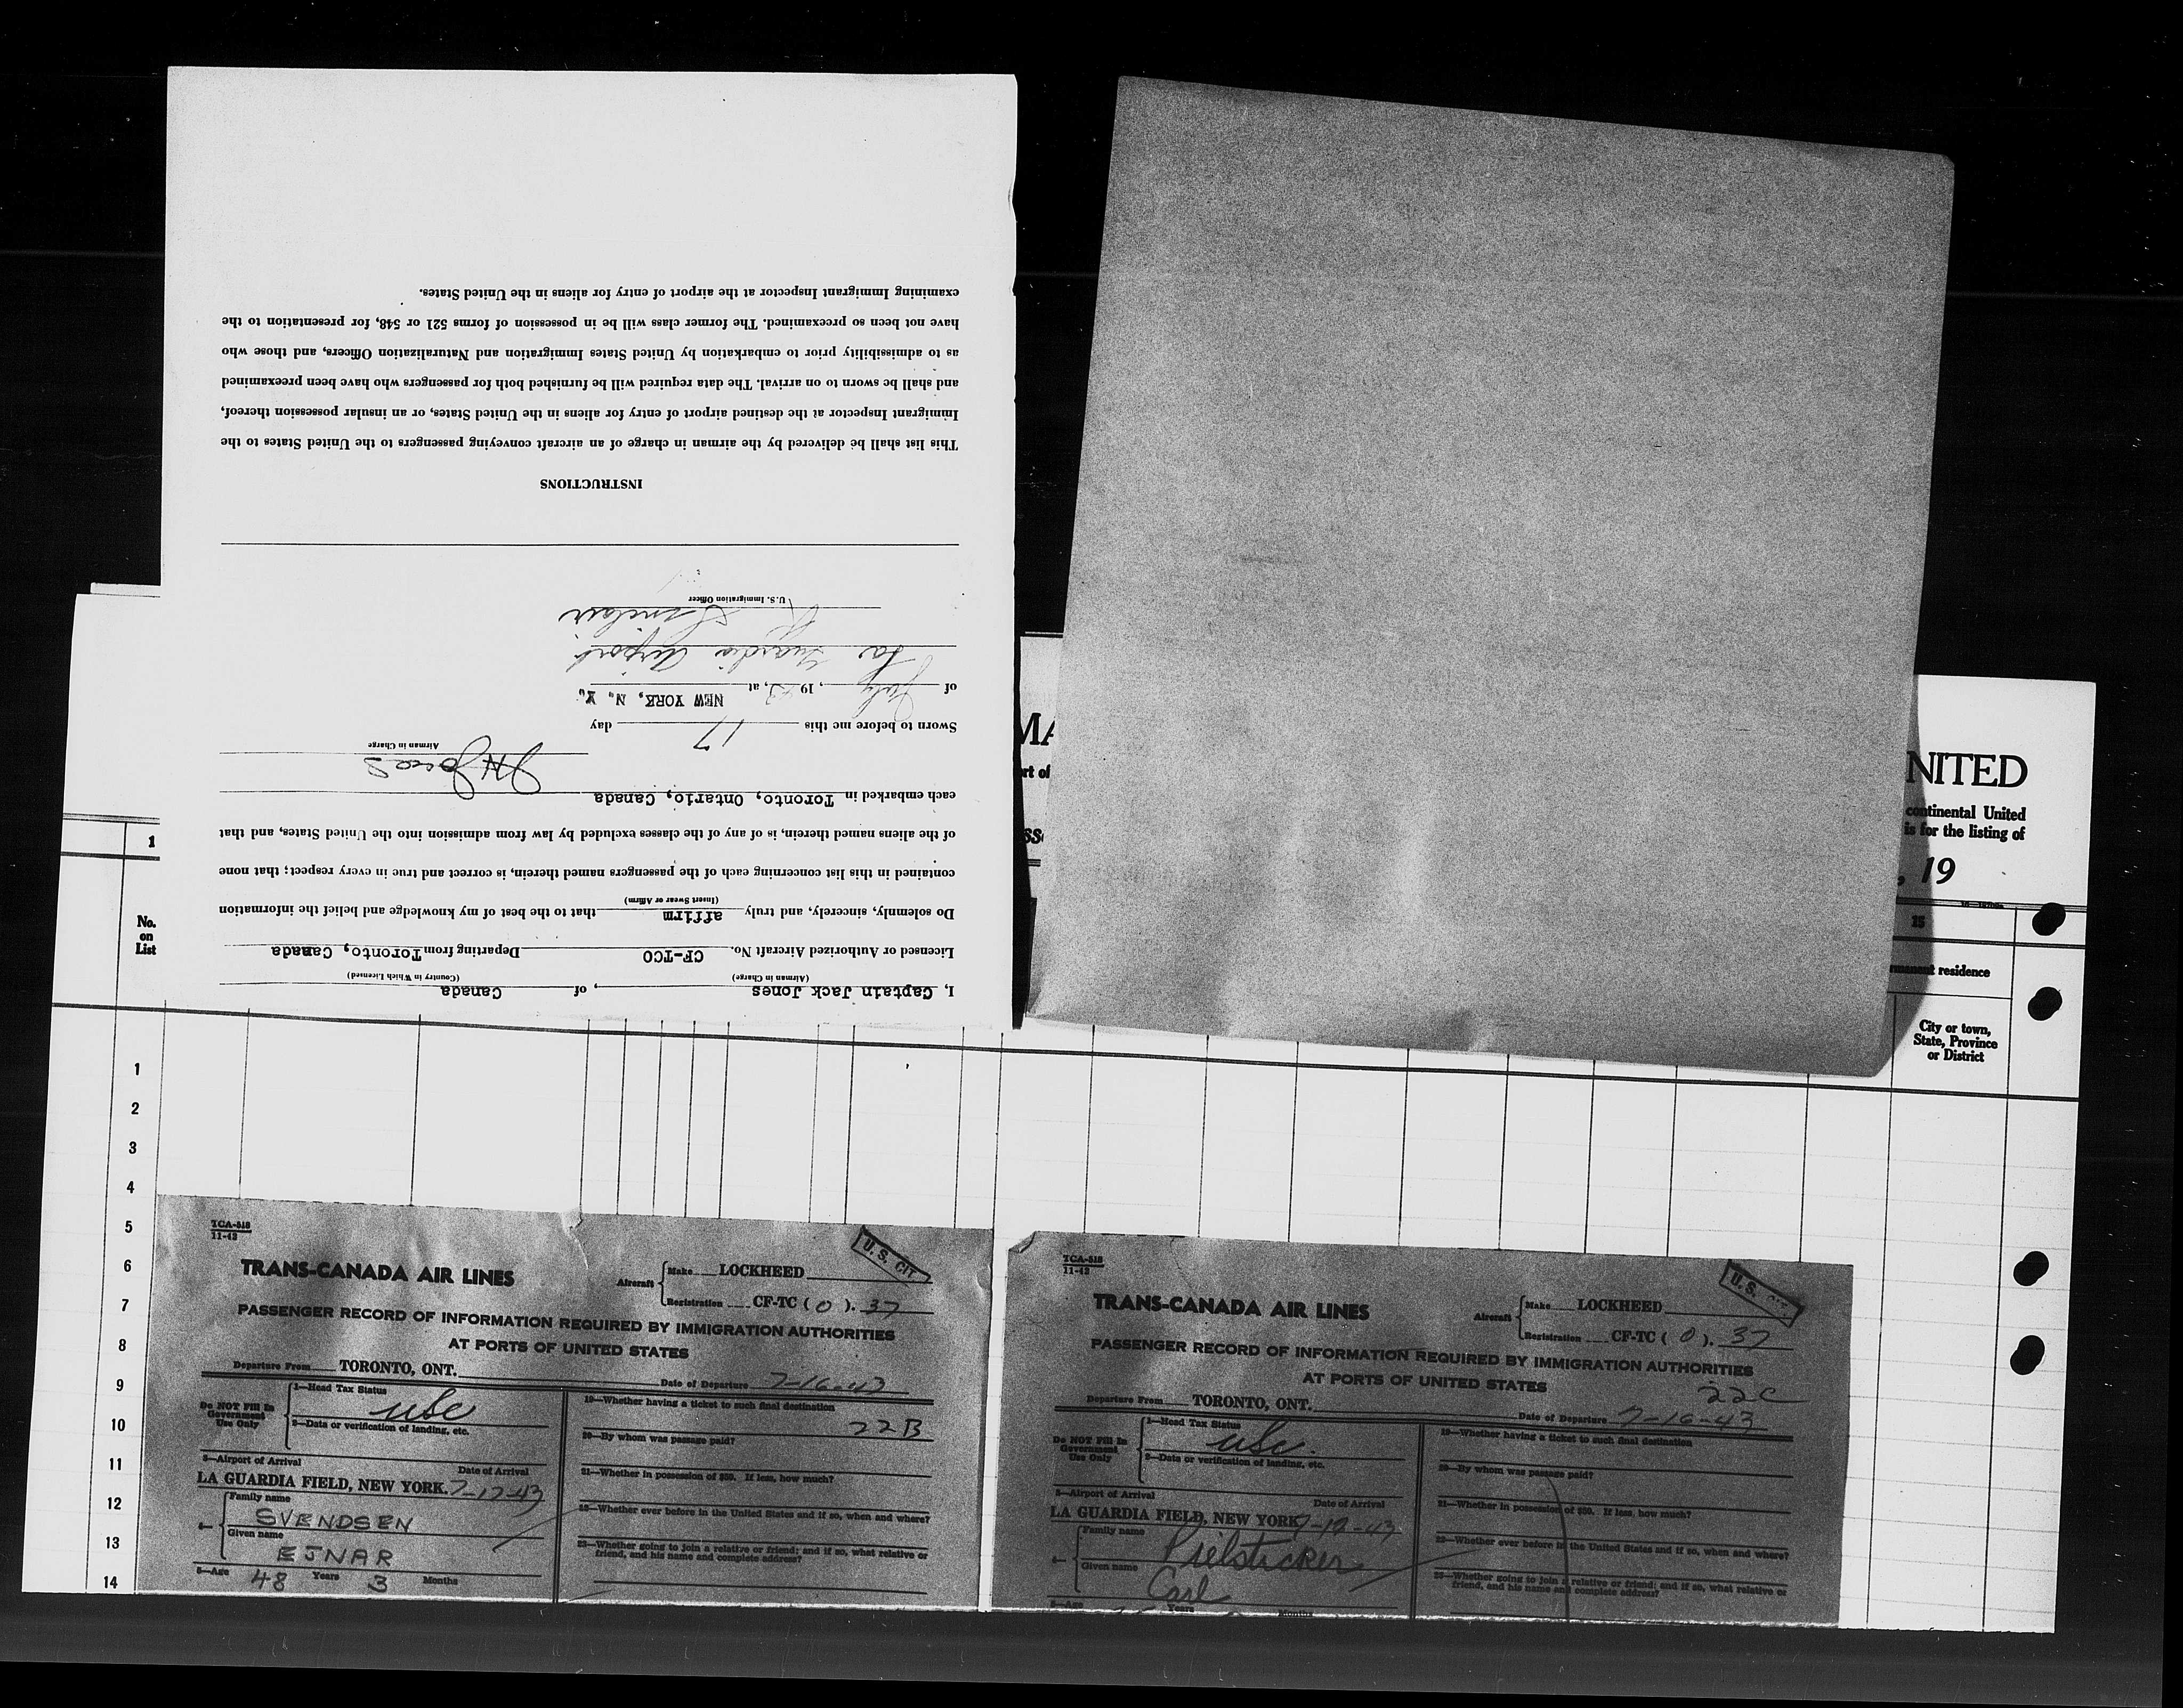 I, Captain Jack Jones, of Canada
(Airman in Charge) (Country in Which Licensed)
Licensed or Authorized Aircraft No. CF-TCO Departing from Toronto, Canada
Do solemnly, sincerely, and truly affirm that to the best of my knowledge and belief the information
(Insert Swear or Affirm)
contained in this list concerning each of the passengers named therein, is correct and true in every respect; that none
of the aliens named therein, is of any of the classes excluded by law from admission into the United States, and that
each embarked in Toronto, Ontario, Canada
JN Jones
Airman in Charge
Sworn to before me this 17 day
of July, 1943, at NEW YORK, N. Y.
La Guardia Airport
Sinclair
U.S. Immigration Officer
INSTRUCTIONS
This list shall be delivered by the airman in charge of an aircraft conveying passengers to the United States to the
Immigrant Inspector at the destined airport of entry for aliens in the United States, or an insular possession thereof,
and shall be sworn to on arrival. The data required will be furnished both for passengers who have been preexamined
as to admissibility prior to embarkation by United States Immigration and Naturalization Officers, and those who
have not been so preexamined. The former class will be in possession of forms 521 or 548, for presentation to the
examining Immigrant Inspector at the airport of entry for aliens in the United States.
MA
rt of
ss
NITED
continental United
is for the listing of
, 19
15
residence
City or town,
State, Province
or District
1
No.
on
List
1
2
3
4
5
6
7
8
9
10
11
12
13
14
TCA-518
11-42
U. S. CIT
TRANS-CANADA AIR LINES
Aircraft
Make LOCKHEED
Registration CF-TC ( O ). 37
PASSENGER RECORD OF INFORMATION REQUIRED BY IMMIGRATION AUTHORITIES
AT PORTS OF UNITED STATES
Departure From TORONTO, ONT. Date of Departure 7-16-43
Do NOT Fill In
Government
Use Only
1—Head Tax Status
USC
2—Data or verification of landing, etc.
3—Airport of Arrival Date of Arrival
LA GUARDIA FIELD, NEW YORK. 7-17-43
4—
Family name
SVENDSEN
Given name
EJNAR
5—Age 48 Years 3 Months
19—Whether having a ticket to such final destination
22B
20—By whom was passage paid?
21—Whether in possession of $50. If less, how much?
22—Whether ever before in the United States and if so, when and where?
23—Whether going to join a relative or friend; and if so, what relative or
friend, and his name and complete address?
TCA-518
11-42
U. S. CIT
TRANS-CANADA AIR LINES
Aircraft
Make LOCKHEED
Registration CF-TC ( O ). 37
PASSENGER RECORD OF INFORMATION REQUIRED BY IMMIGRATION AUTHORITIES
AT PORTS OF UNITED STATES
22C
Departure From TORONTO, ONT. Date of Departure 7-16-43
Do NOT Fill In
Government
Use Only
1—Head Tax Status
USC.
2—Data or verification of landing, etc.
3—Airport of Arrival Date of Arrival
LA GUARDIA FIELD, NEW YORK 7-17-43
4—
Family name
Pielsticker
Given name
Carl
5—Age Years Months
19—Whether having a ticket to such final destination
20—By whom was passage paid?
21—Whether in possession of $50. If less, how much?
22—Whether ever before in the United States and if so, when and where?
23—Whether going to join a relative or friend; and if so, what relative or
friend, and his name and complete address?